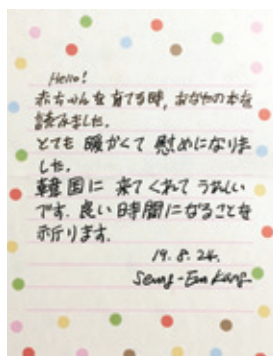 Hello!
赤ちゃんを育てる時, あなたの本を
読みました.
とても 暖かくて 慰めになりま
した.
韓国に 来てくれて うれしい
です. 良い時間になることを
祈ります.
19. 8. 24.
Seung-Eun Kang